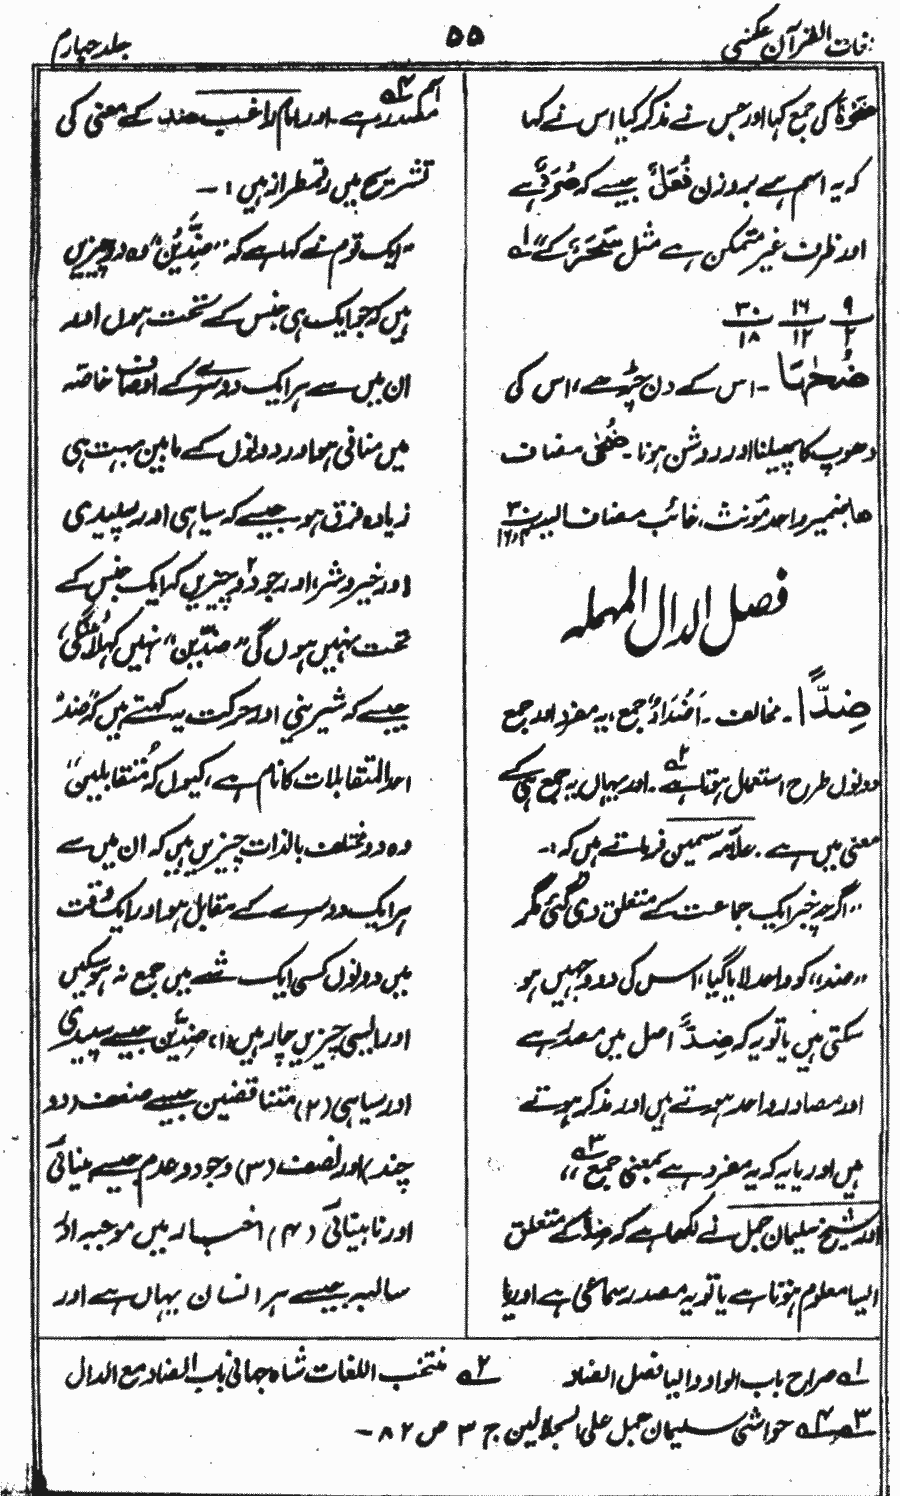 لغات القرآن عکسی
۵۵
جلد چہارم
ضَحْوَۃٌ کی جمع کہا اور جس نے مذکر کہا اس نے کہا
کہ یہ اسم ہے بروزن فُعَلٌ جیسے کہ صُرَدٌ ہے
اور ظرف غیر متمکن ہے مثل سَحَرَ کے" لہ
۹/۲ ۱۶/۱۲ ۳۰/۱۸
ضُحٰہَا - اس کے دن چڑھے، اس کی
دھوپ کا پھیلنا اور روشن ہونا - ضُحٰی مضاف
ھا ضمیر واحد مؤنث، غائب مضاف الیہ ۳۰/۱۶،۳
فصل الدال المہملہ
ضِدًّا - مخالف - اَضْدَادٌ جمع، یہ مفرد اور جمع
دونوں طرح استعمال ہوتا ہے ۲ہ - اور یہاں یہ جمع ہی کے
معنی میں ہے - علامہ سمین فرماتے ہیں کہ :-
"اگرچہ خبر ایک جماعت کے متعلق دی گئی مگر
"ضد" کو واحد لایا گیا، اس کی دو وجہیں ہو
سکتی ہیں یا تو یہ کہ ضِدٌّ اصل میں مصدر ہے
اور مصادر واحد ہوتے ہیں اور مذکر ہوتے
ہیں اور یا یہ کہ یہ مفرد ہے بمعنی جمع ۳ہ"
اور شیخ سلیمان جمل نے لکھا ہے کہ ضِدًّا کے متعلق
ایسا معلوم ہوتا ہے یا تو یہ مصدر سماعی ہے اور یا
اسم مصدر ہے ۴ہ - اور امام راغب ضد کے معنی کی
تشریح میں رقمطراز ہیں : -
"ایک قوم نے کہا ہے کہ "ضِدَّیْن" وہ دو چیزیں
ہیں کہ جو ایک ہی جنس کے تحت ہوں اور
ان میں سے ہر ایک دوسرے کے اوصاف خاصہ
میں منافی ہو اور دونوں کے مابین بہت ہی
زیادہ فرق ہو جیسے کہ سیاہی اور سپیدی
اور خیر و شر، اور جو دو ۲ چیزیں کہ ایک جنس کے
تحت نہیں ہوں گی "ضدّین" نہیں کہلائیں گی،
جیسے کہ شیرینی اور حرکت یہ کہتے ہیں کہ "ضد"
احد المتقابلات کا نام ہے، کیوں کہ "متقابلین"
وہ دو مختلف بالذات چیزیں ہیں کہ ان میں سے
ہر ایک دوسرے کے مقابل ہو اور ایک وقت
میں دونوں کسی ایک شے میں جمع نہ ہو سکیں
اور ایسی چیزیں چار ہیں (۱) ضِدَّین جیسے سپیدی
اور سیاہی (۲) متناقضین جیسے ضعف (دو
چند) اور نصف (۳) وجود و عدم جیسے بینائی
اور نابینائی (۴) اخبار میں موجبہ اور
سالبہ جیسے ہر انسان یہاں ہے اور
۱ہ صراح باب الواو والیا فصل الضاد ۲ہ منتخب اللغات شاہ جہانی باب الضاد مع الدال
۳ہ، ۴ہ حواشی سلیمان جمل علی الجلالین ج ۳ ص ۸۲ -